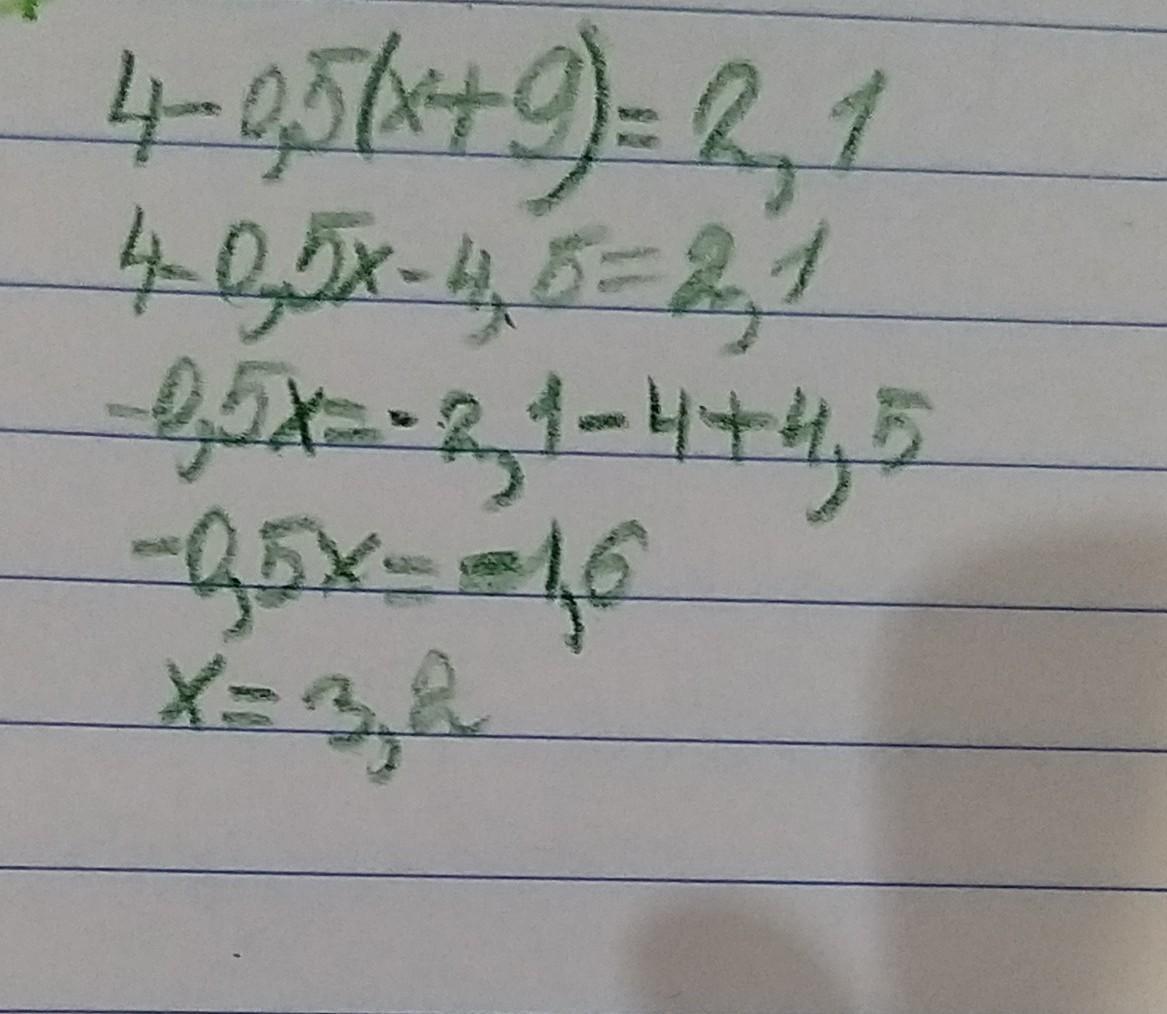 4-0,5(x+9)=2,1
4-0,5x-4,5=2,1
-0,5x=-2,1-4+4,5
-0,5x=-1,6
x=3,2